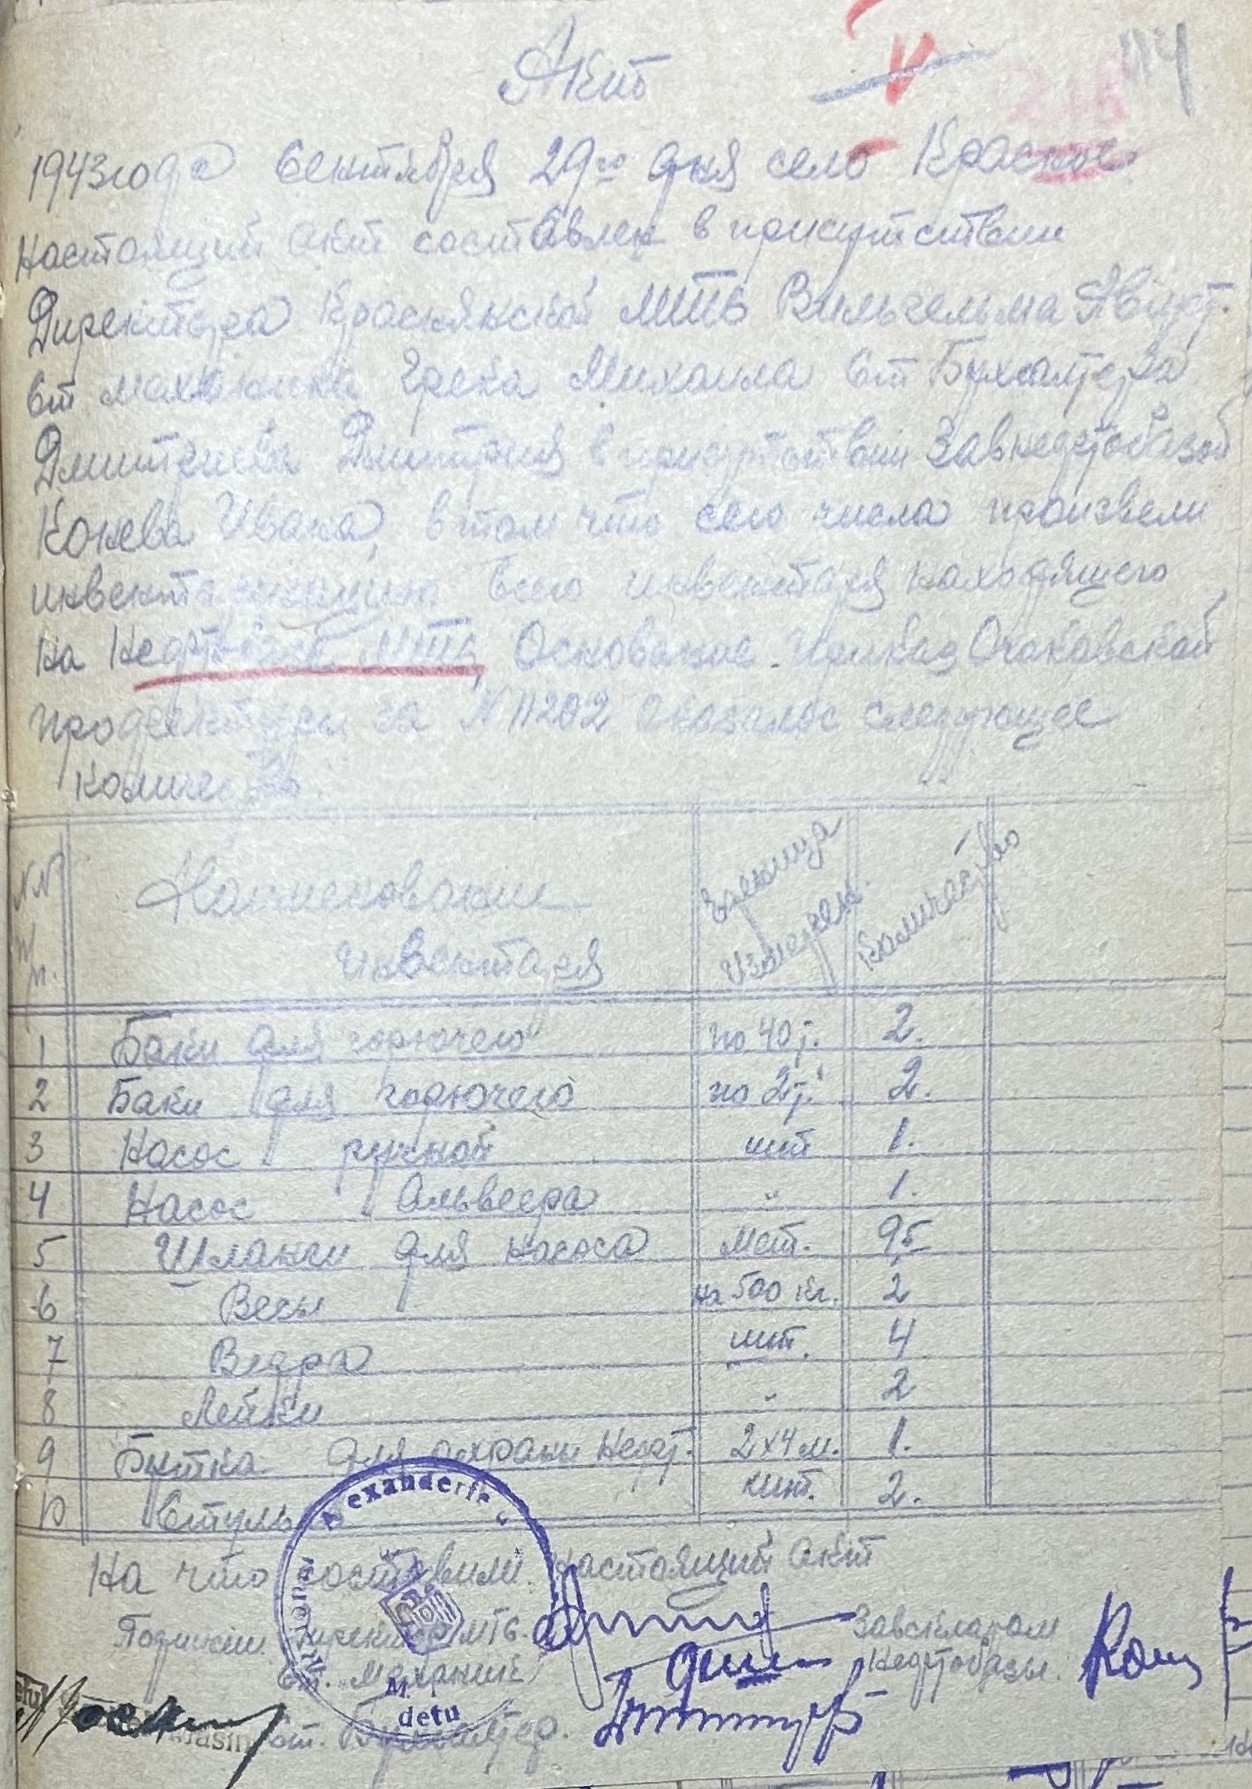 114
Акт
1943 года Сентября 29го дня село Красное
Настоящий акт составлен в присутствии
Директора Краснянской МТС Вильгельма Август.
Ст механика Грека Михаила Ст Бухгалтера
Дмитриева Дмитрия в присутствии Завнефтобазой
Конева Ивана, в том что сего числа произвели
инвентаризацию всего инвентаря находящего
на Нефтебазе МТС, Основание Приказ Очаковской
за № 11202 Оказалос следующее
количество.
№№ п/п. Наименование инвентаря Единица Измерен. Количество
1 Баки для горючего по 40 т. 2.
2 Баки для горючего по 2 т. 2.
3 Насос ручной шт 1.
4 Насос Альвеера " 1.
5 Шланги для насоса Мет. 95
6 Весы на 500 кг. 2
7 Ведра шт. 4
8 Лейки " 2
9 Бутка для охраны Нефт. 2х4 м. 1.
10 Стуль шт. 2.
На что составили настоящий акт
Подписи Директор МТС. Завскладом
Ст. Механик Нефтобазы.
Ст. Бухгалтер.
detu